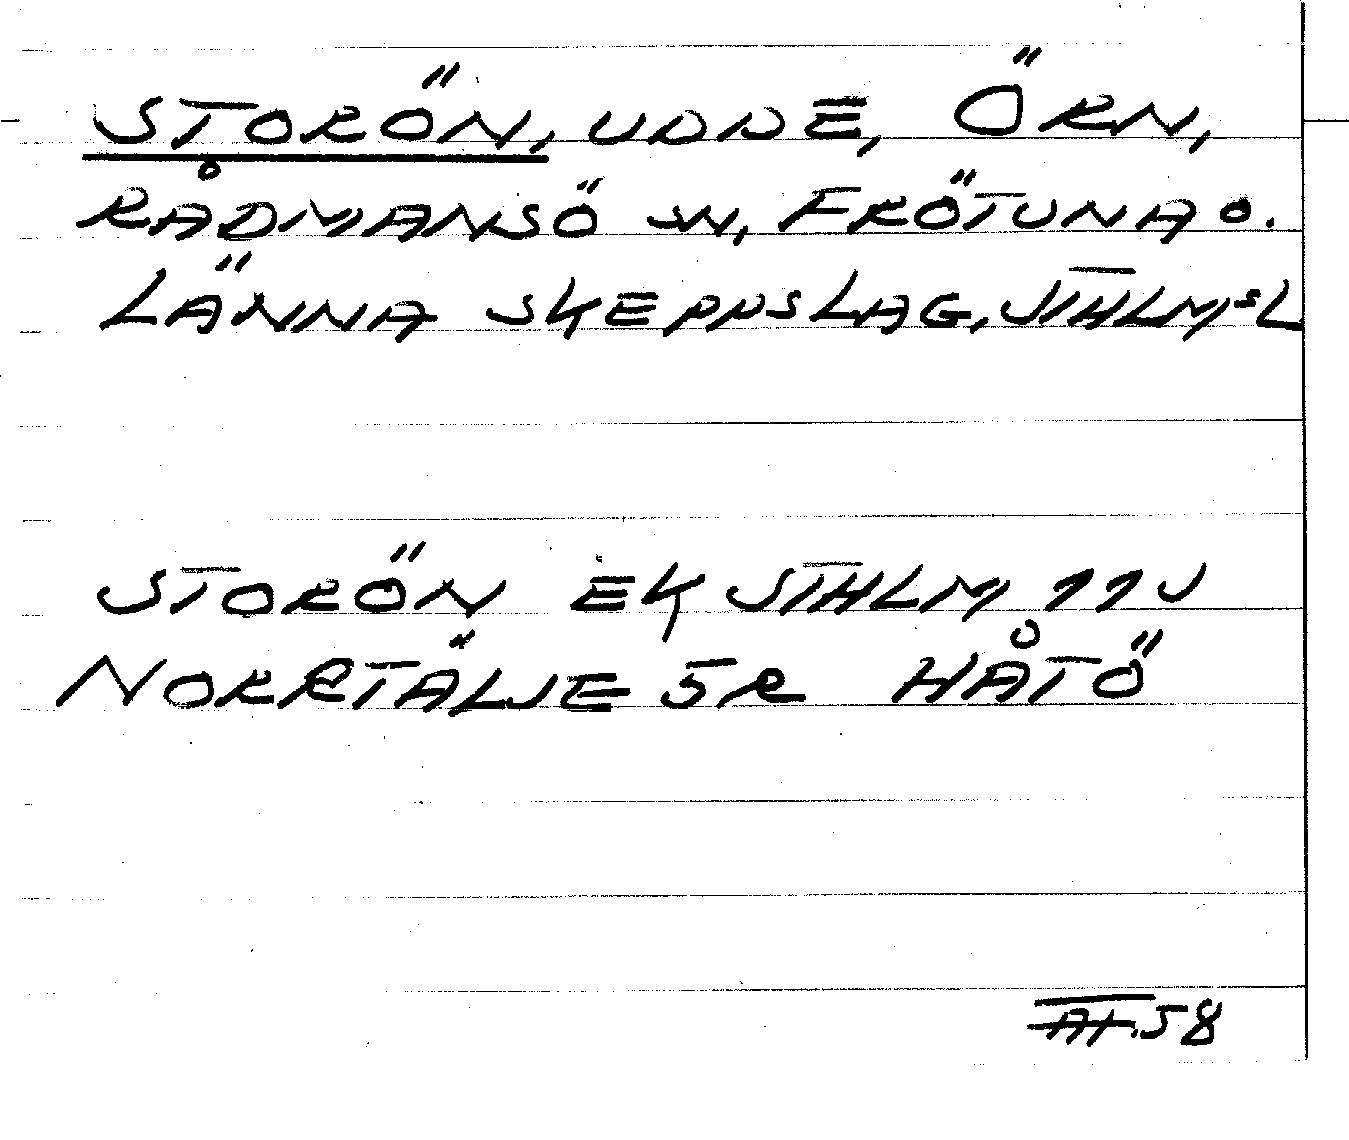 STORÖN, UDDE, ÖRN,
RÅDMANSÖ SN, FRÖTUNA O.
LÄNNA SKEPPSLAG, STHLMS L
STORÖN EK STHLM 11 J
NORRTÄLJE 5 R HÅTÖ
58